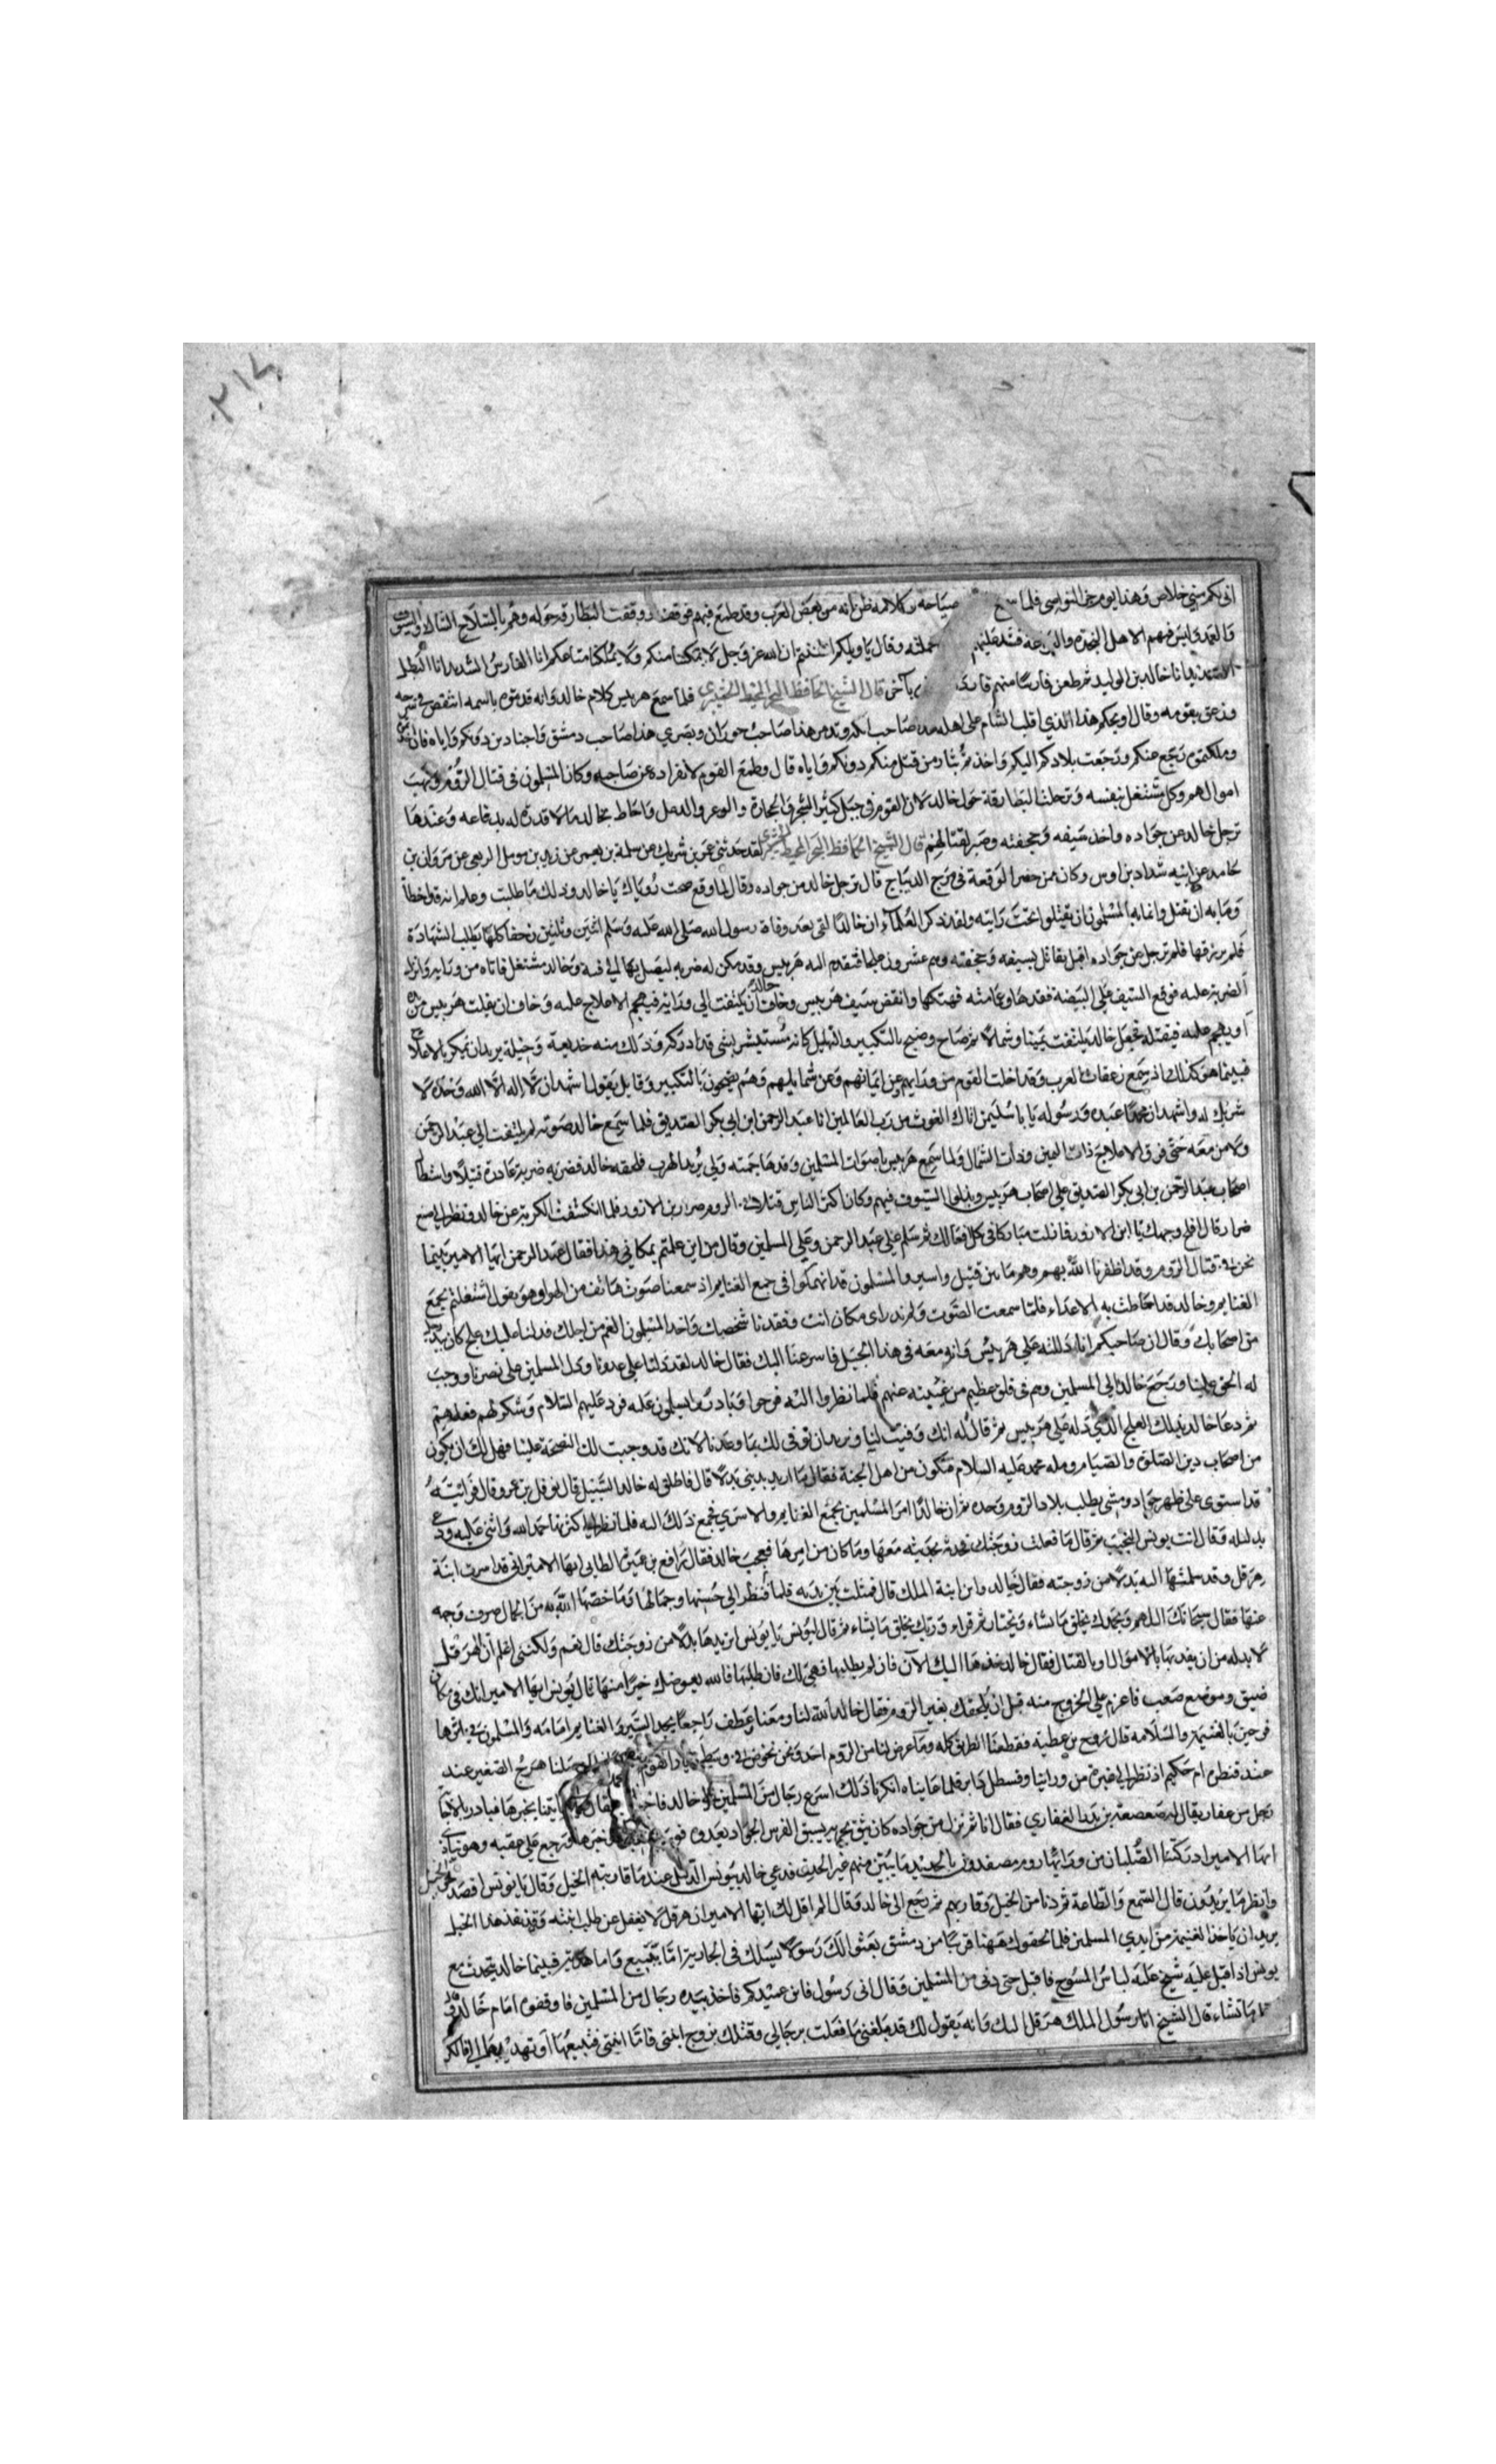 اني لكم مني خلاص وهذا يوم جز النواصي فلما سمع صياحه وكلامه ظن انه من بعض العرب وقد طمع فيهم فوقف ووقفت البطارقة حوله وهم بالسلاح الشاك والسيوف
والعمد وليس فيهم الا اهل النجدة والشجاعة فشد عليهم حملته وقال يا ويلكم اظننتم ان الله عز وجل لا يمكننا منكم ولا يملكنا متاعكم انا الفارس الشديد انا البطل
الصنديد انا خالد بن الوليد ثم طعن فارسا منهم فارداه بآخر قال الشيخ الحافظ البحر المحيط الخيبري فلما سمع هربيس كلام خالد وانه قد نوه باسمه انتقص في سرجه
وزعق بقومه وقال ويحكم هذا الذي اقلب الشام على اهله هذا صاحب اركه وتدمر هذا صاحب حوران وبصرى هذا صاحب دمشق واجنادين دونكم واياه فان
وملكتموه رجع عنكم ورجعت بلادكم اليكم واخذتم بثار من قتل منكم دونكم واياه قال وطمع القوم لانفراده عن صاحبه وكان المسلمون في قتال الروم ونهب
اموالهم وكل مشتغل بنفسه وترجلت البطارقة حول خالد لان القوم في جبل كثير الشجر والحجارة والوعر والدغل واحاط بخالد ما لا قدرة له بدفاعه وعندها
ترجل خالد من جواده واخذ سيفه وحجفته وصبر لقتالهم قال الشيخ الحافظ البحر المحيط الخيبري لقد حدثني عمر بن شريك عن سلمة بن يعمر عن زيد بن موسل الربعي عن مروان بن
حامد عن ابيه شداد بن اوس وكان ممن حضر الوقعة في مرج الديباج قال ترجل خالد من جواده وقال لما وقع صحت رؤياك يا خالد ودلك ما طلبت وعلم انه قد اخطأ
وما به ان يقتل وانما به المسلمون ان يقتلوا تحت رايته ولقد ذكر العلماء ان خالدا لقى بعد وفاة رسول الله صلى الله عليه وسلم اثنين وثلثين زحفا كلها يطلب الشهادة
فلم يرزقها فلم ترجل من جواده اقبل يقاتل بسيفه وحجفته وهم عشرون علجا فتقدم اليه هربيس وقد مكن له ضربه ليصل بها الى نفسه وخالد مشتغل فاتاه من ورائه وانزل
الضربة عليه فوقع السيف على البيضة فقدها وعمامته فهتكها وانقض سيف هربيس وخاف خالد ان يلتفت الى ورائه فيهجم الاعلاج عليه وخاف ان يفلت هربيس من
او يهجم عليه فيقتله فجعل خالد يلتفت يمينا وشمالا ثم صاح وضج بالتكبير والتهليل كانه مستبشر بشي قد ادركه وذلك منه خديعة وحيلة يريد ان يمكر بالاعلاج
فبينما هو كذلك اذ سمع زعقات العرب وقد اخلت القوم من ورائهم وعن ايمانهم وعن شمائلهم وهم يضجون بالتكبير وقايل يقول اشهد ان لا اله الا الله وحده لا
شريك له واشهد ان محمدا عبده ورسوله يا با سليمن اتاك الغوث من رب العالمين انا عبد الرحمن ابن ابي بكر الصديق فلما سمع خالد صوته لم يلتفت الى عبد الرحمن
ولا من معه حتى فرق الاعلاج ذات اليمين وذات الشمال ولما سمع هربيس باصوات المسلمين وقدها جمته ولى يريد الهرب فلحقه خالد فضربه ضربة غادره قتيلا واستطال
اصحاب عبد الرحمن بن ابي بكر الصديق على اصحاب هربيس وبذلوا السيوف فيهم وكان اكثر الناس قتلا في الروم ضرار بن الازور فلما انكشفت الكربة عن خالد ونظر الى صنع
ضرار قال افلح وجهك يا ابن الازور فما زلت مباركا في كل فعالك ثم سلم على عبد الرحمن وعلى المسلمين وقال من اين علمتم بمكاني هذا فقال عبد الرحمن ايها الامير بينما
نحن في قتال الروم وقد اظفرنا الله بهم وهم ما بين قتيل واسير والمسلمون قد انهمكوا في جمع الغنايم اذ سمعنا صوت هاتف من الهوا وهو يقول اشتغلتم بجمع
الغنايم وخالد قد احاطت به الاعداء فلما سمعت الصوت ولم ندر اي مكان انت وفقدنا شخصك واخذ المسلمون الغم من اجلك فدلنا عليك علج كان بيد رجل
من اصحابك وقال ان صاحبكم انا دللته على هربيس وانه معه في هذا الجبل فاسرعنا اليك فقال خالد لقد دلنا على عدونا ودل المسلمين على نصرنا ووجب
له الحق علينا ورجع خالد الى المسلمين وهم في قلق عظيم من غيبته عنهم فلما نظروا اليه فرحوا وبادروا يسلمون عليه فرد عليهم السلام وشكر لهم فعلهم
ثم دعا خالد بذلك العلج الذي دله على هربيس ثم قال له انك وفيت لنا ونريد ان نوفي لك بما وعدنا لانك قد وجبت لك النصيحة علينا فهل لك ان يكون
من اصحاب دين الصلوة والصيام وملة محمد عليه السلام فتكون من اهل الجنة فقال ما اريد بديني بدلا قال فاطلق له خالد السبيل قال نوفل بن عمرو وقال فرأيته
قد استوى على ظهر جواده ومشى يطلب بلاد الروم وحده ثم ان خالدا امر المسلمين بجمع الغنايم والاسرى فجمع ذلك اليه فلما نظر الى كثرتها حمد الله واثنى عليه ودعى
بدليله وقال انت يونس النجيب ثم قال ما فعلت زوجتك فحدثه بحديثه معها وما كان من امرها فعجب خالد فقال رافع بن عميرة الطائي ايها الامير اني قد اسرت ابنة
هرقل وقد سلمتها اليه بدلا من زوجته فقال خالد واين ابنة الملك قال فمثلت بين يديه فلما نظر الى حسنها وجمالها وما خصها الله به من الجمال صرف وجهه
عنها فقال سبحانك اللهم وبحمدك يخلق ما تشاء وتختار ثم قراء وربك يخلق ما يشاء ثم قال ليونس يا يونس اتريدها بدلا من زوجتك قال نعم ولكنني اعلم ان هرقل
لا بد له من ان يفديها بالاموال او بالقتال فقال خالد خذها اليك الآن فان لم يطلبها فهي لك فان طلبها فالله يعوضك خيرا منها قال يونس ايها الامير انك في مكان
ضيق وموضع صعب فاعزم على الخروج منه قبل ان يلحقك نفير الروم فقال خالد الله لنا ومعنا وعطف راجعا يجد السير والغنايم امامه والمسلمون في اثرها
فرحين بالغنيمة والسلامة قال روح بن عطية فقطعنا الطريق كله وما عرض لنا من الروم احد ونحن نخوض في وسط ديار القوم وصلنا مرج الصفير عند
عند قنطرة ام حكيم اذ نظر الى غبرة من ورائنا وقسطل ثاير فلما عايناه انكرنا ذلك اسرع رجال من المسلمين الى خالد فاخبروه فقال ايكم ياتينا بخبرها فبادر بالاجابة
رجل من غفار يقال له صعصعة بن يزيد الغفاري فقال انا ثم نزل من جواده كان يثق بجريه يسبق الفرس الجواد يعدوه ورجع على عقبه وهو ينادي
ايها الامير ادركتنا الصلبان من ورائها روم مصفدون بالحديد ما يبين منهم غير الحدق فدعى خالد بيونس الدليل عندما قاربته الخيل وقال يا يونس اقصد نحو الخيل
وانظر ما يريدون قال السمع والطاعة ثم دنا من الخيل وقاربهم ثم رجع الى خالد وقال الم اقل لك ايها الامير ان هرقل لا يغفل عن طلب ابنته وقد نفذ هذا الخيل
يريد ان ياخذ الغنيمة من ايدي المسلمين فلما لحقوك ههنا قريبا من دمشق بعثوا لك رسولا يسلك في الجارية اما تبيع واما هدية فبينما خالد يتحدث مع
يونس اذ اقبل عليه شيخ عليه لباس المسوح فاقبل حتى دنى من المسلمين وقال اني رسول فاين عميدكم فاخذ بيده رجال من المسلمين فاوقفوه امام خالد وقال
ما تشاء قال الشيخ انا رسول الملك هرقل اليك وانه يقول لك قد بلغني ما فعلت برجالي وقتلك زوج ابنتي فاما ابنتي فتبيعها او تهديها الي فالكرم